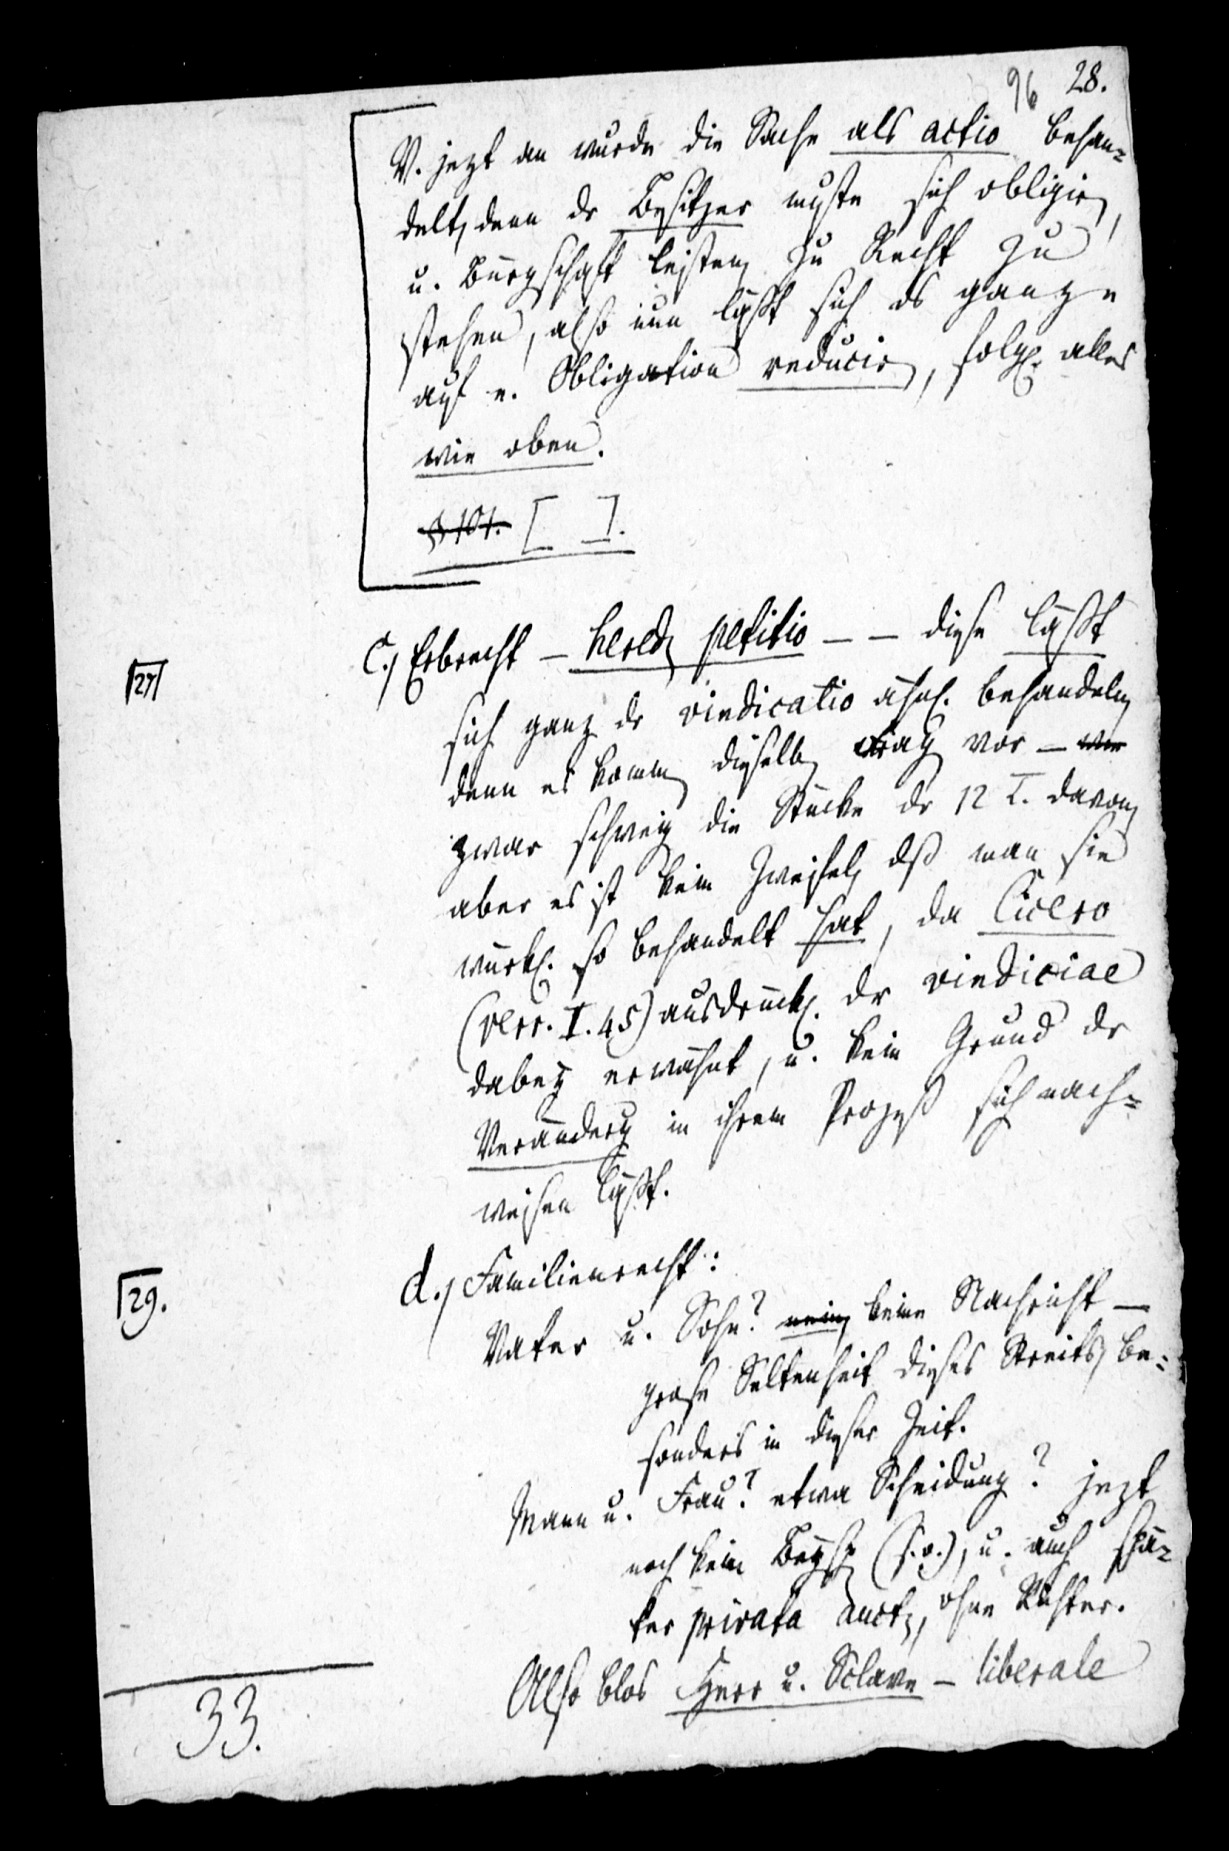 96 28.
V. jezt an wurde die Sache als actio behan=
delt, denn der Besitzer muste sich obligir,
u. Bürgschaft leisten zu Recht zu
stehen, also nun läßt sich ds ganze
auf e. Obligation reducir, folgl. alles
wie oben.
§ 101. [ ].
|27| c.) Erbrecht – hered petitio – – diese läßt
sich ganz der vindicatio ähnl. behandeln,
denn es kommen dieselben Frag vor – wie
zwar schweig die Stücke der 12 T. davon,
aber es ist kein Zweifel, dß man sie
würkl. so behandelt hat, da Cicero
(verr. I. 45) ausdrückl. der vindiciae
dabey erwähnt, u. kein Grund der
Veränderg in ihrem Prozeß sich nach=
weisen läßt.
29. d.) Familienrecht:
Vater u. Sohn? nein, keine Nachricht –
grose Seltenheit dieses Streits, be=
sonders in dieser Zeit.
Mann u. Frau? etwa Scheidung? jezt
noch kein Beysp (s.o.), u. auch spä=
ter privata auct, ohne Richter.
Also blos Herr u. Sclave – liberale
33.